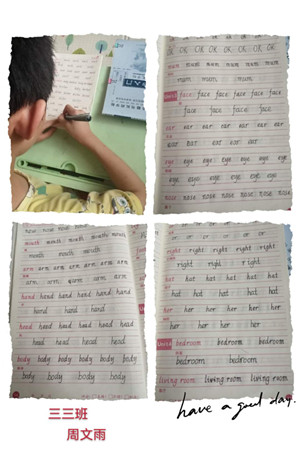 ok OK OK OK OK OK OK
mum mum mum mum mum
mum mum mum
face face face face face face
face face face face
ear ear ear ear ear ear
ear ear ear ear ear
eye eye eye eye eye eye
eye eye eye eye eye
nose nose nose nose nose nose
nose nose nose nose
mouth mouth mouth mouth mouth
mouth mouth mouth
arm arm arm arm arm arm
arm arm arm arm arm
hand hand hand hand hand hand
hand hand hand
head head head head head head
head head head head
body body body body body body
body body body
or or or or or
right right right right
right right right
hat hat hat hat hat hat
hat hat hat hat hat
her her her her her her
her her her her
bedroom bedroom bedroom
bedroom bedroom
living room living room living room
三三班
周文雨
have a good day.